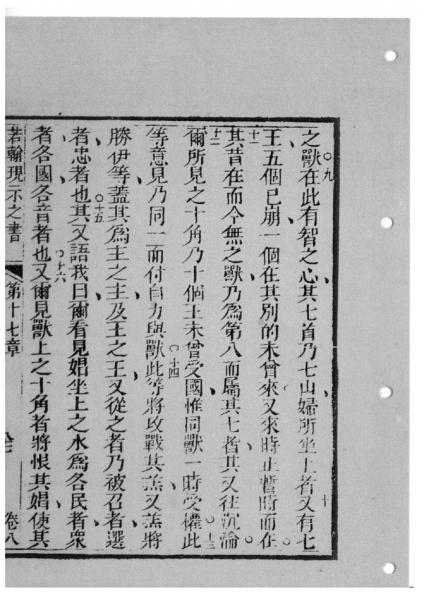 之獸在此有智之心其七首乃七山婦所坐上者又有七
〇九
王五個已崩一個在其別的未曾來又來時止暫時而在
十
十一
其昔在而今無之獸乃為第八而屬其七者其又往沉淪
十二
爾所見之十角乃十個王未曾受國惟同獸一時受權此
〇十三
等意見乃同一而付自力與獸此等將攻戰其羔又羔將
〇十四
勝伊等蓋其為主之主及王之王又從之者乃被召者選
者忠者也其又語我曰爾看見娼坐上之水為各民者衆
〇十五
者各國各音者也又爾見獸上之十角者將恨其娼使其
〇十六
若翰現示之書
第十七章
卷八